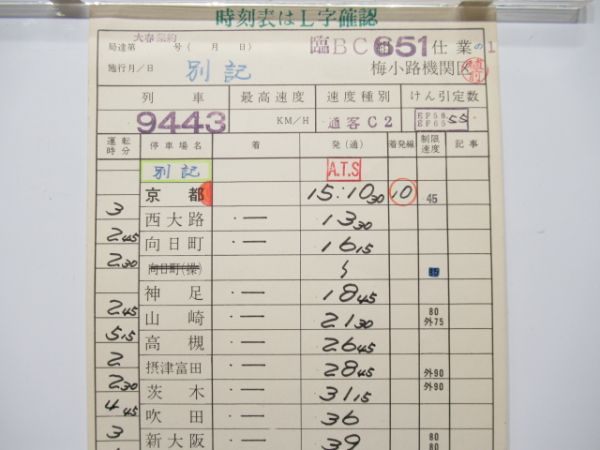 時刻表はL字確認
大春集約
局達第 号(月 日) 臨BC651仕業の1
施行月/日 別記 梅小路機関区
列車 最高速度 速度種別 けん引定数
9443 KM/H 通客C2 EF58 EF65 55
運転時分 停車場名 着 発(通) 着発線 制限速度 記事
別記 A.T.S
京都 15:10 30 10 45
3 西大路 ・― 13 30
2 45 向日町 ・― 16 15
2 30 向日町(操)
神足 ・― 18 45
2 45 山崎 ・― 21 30 80 外75
5 15 高槻 ・― 26 45
2 摂津富田 ・― 28 45 外90
2 30 茨木 ・― 31 15 外90
4 45 吹田 ・― 36
3 新大阪 ・― 39 80
80